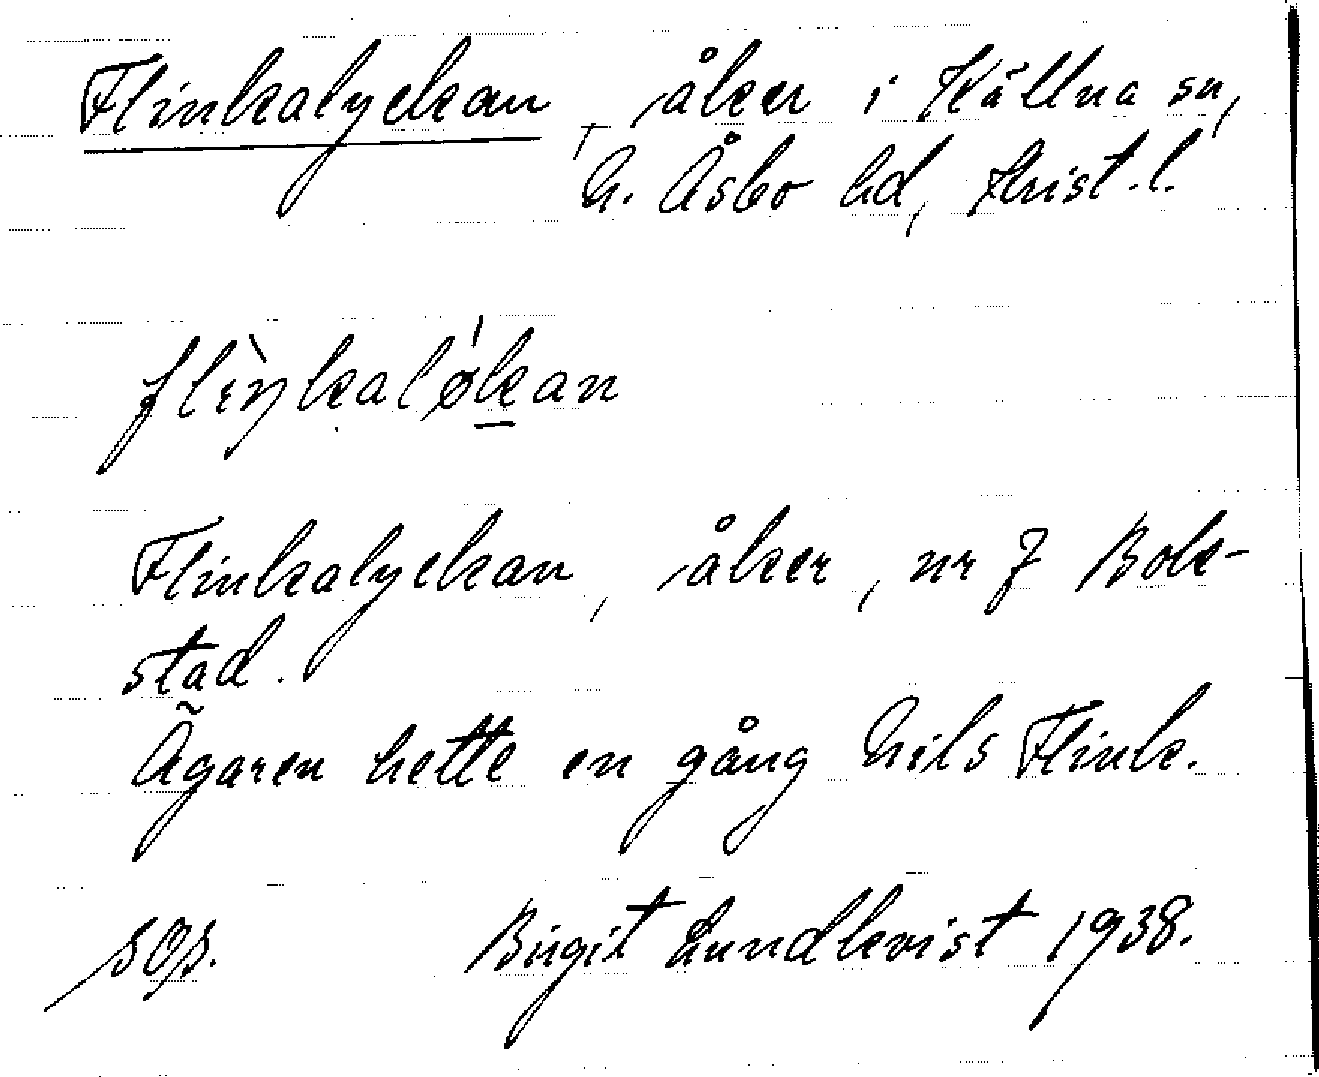 Flinkalyckan, åker i Källna sn,
N. Åsbo hd, Krist. l.
flìŋkaló̷kan
Flinkalyckan, åker, nr 7 Bok-
stad.
Ägaren hette en gång Nils Flink.
Birgit Lundkvist 1938.